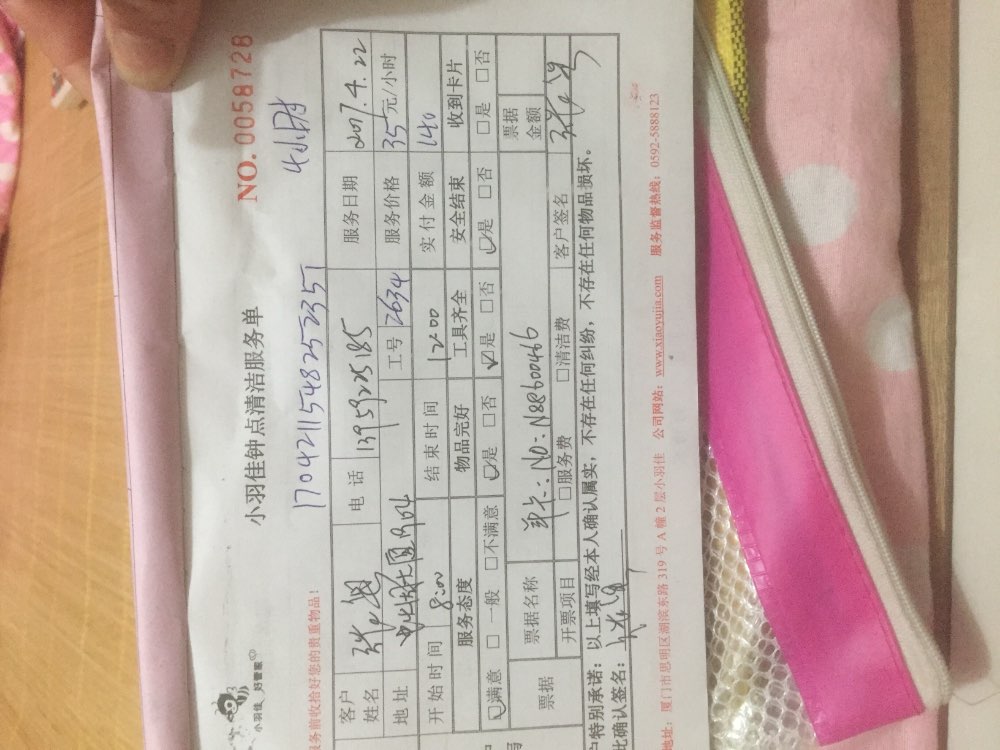 小羽佳 好管家
小羽佳钟点清洁服务单
NO. 0058728
服务前收拾好您的贵重物品!
1704211548252351
4小时
客户姓名
电话 13959225185
服务日期 2017.4.22
地址
工号 2634
服务价格 35元/小时
开始时间 8:00
结束时间 12:00
实付金额 140
服务态度 物品完好 工具齐全 安全结束 收到卡片
☑满意 □一般 □不满意 ☑是 □否 ☑是 □否 ☑是 □否 □是 □否
票据
票据名称
NO:N88600466
票据金额
开票项目 □服务费 □清洁费
客户签名
户特别承诺:以上填写经本人确认属实,不存在任何纠纷,不存在任何物品损坏。
此确认签名:
地址:厦门市思明区湖滨东路319号A幢2层小羽佳 公司网站:www.xiaoyujia.com 服务监督热线:0592-5888123